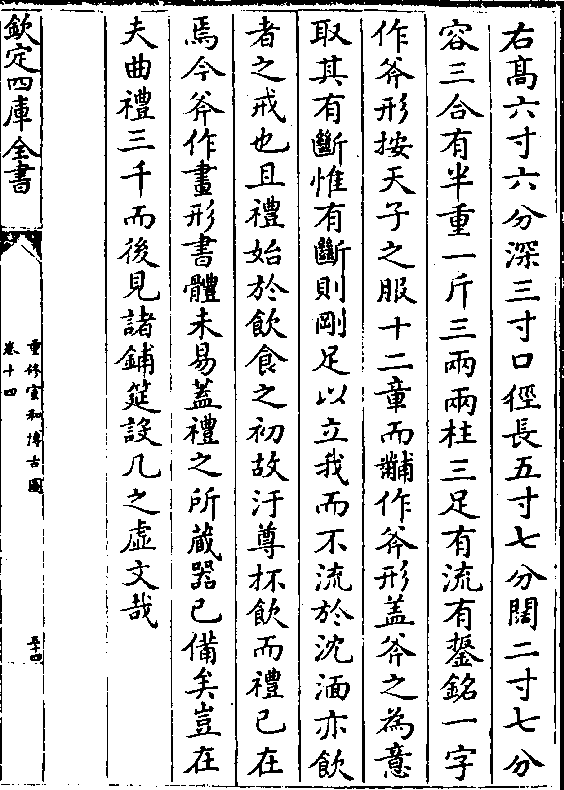 右髙六寸六分深三寸口徑長五寸七分闊二寸七分
容三合有半重一斤三兩兩柱三足有流有鋬銘一字
作斧形按天子之服十二章而黼作斧形蓋斧之為意
取其有斷惟有斷則剛足以立我而不流於沈湎亦飲
者之戒也且禮始於飲食之初故汙尊抔飲而禮已在
焉今斧作畫形書體未易蓋禮之所藏器已備矣豈在
夫曲禮三千而後見諸鋪筵設几之虛文哉
欽定四庫全書
重修宣和博古圖
卷十四
五十四